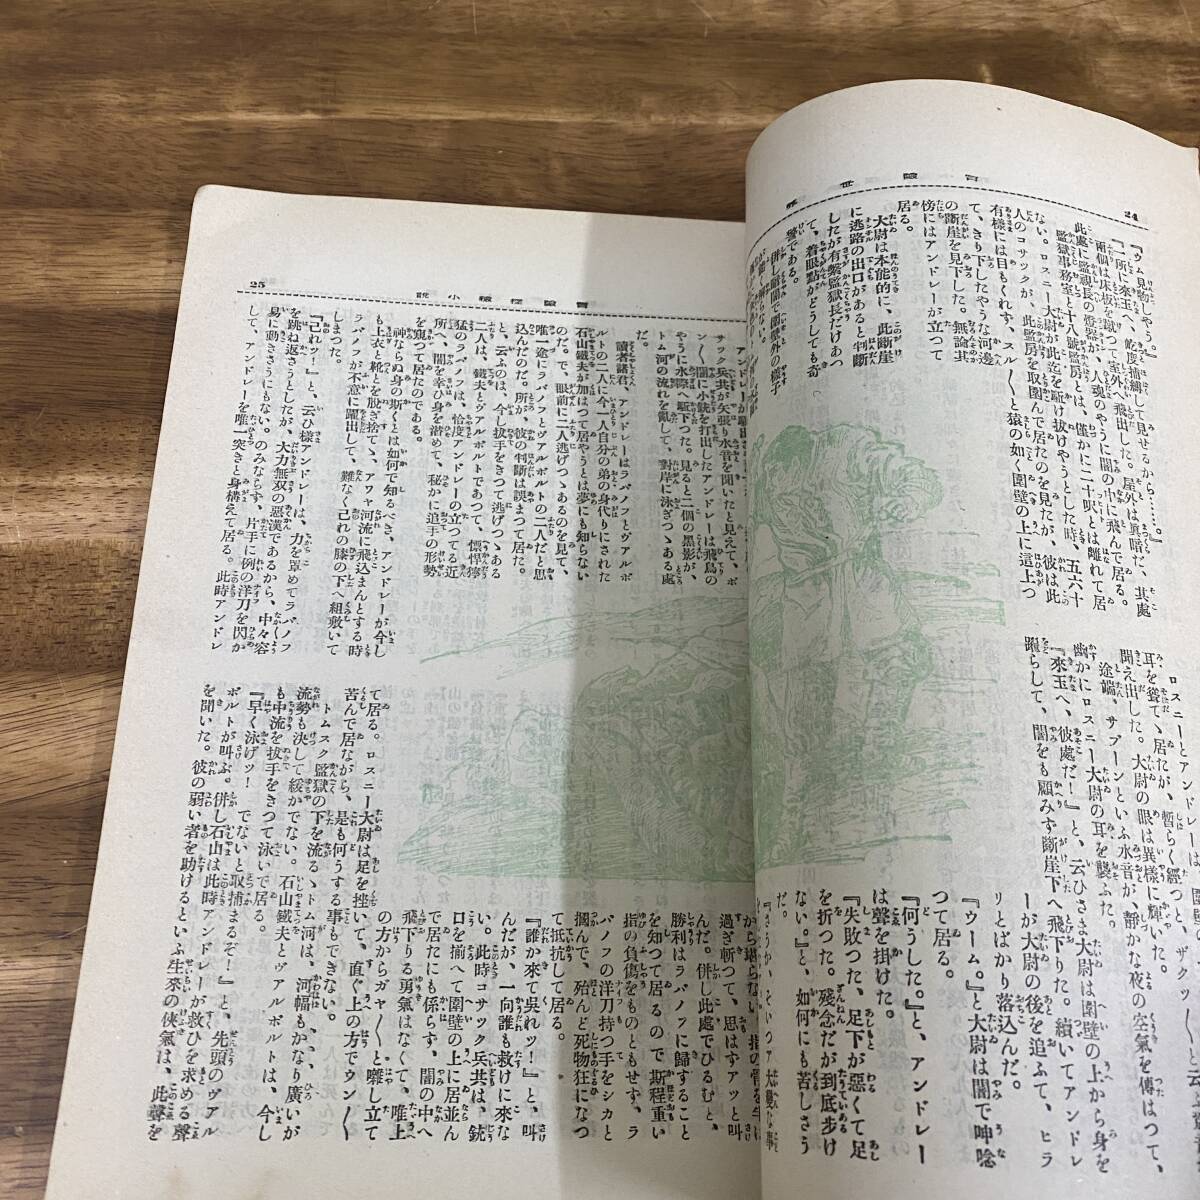 24
冒險世界
『ウム見物しやう。』
『一所に來玉へ、屹度捕縛して見せるから……。』
兩個は床板を蹴つて室外へ飛出した。屋外は眞暗だ、其處
此處に監視長の番燈が、人魂のやうに闇の中に飛んで居る。
監獄事務室と十八號監房とは、僅かに二十呎とは離れて居
ない。ロスニー大尉が此迄を駈け拔けやうとした時、五六十
人のコサックが、此監房を取圍んで居たのを見たが、彼は此
有樣には目もくれず、スル〳〵と猿の如く圍壁の上に這上つ
て、きり下したやうな河邊
の斷崖を見下した。無論其
傍にはアンドレーが立つて
居る。
大尉は本能的に、此斷崖
に逃路の出口があると判斷
したが有繋監獄長だけあつ
て、着眼點がどうしても奇
警である。
併し暗闇で園壁外の樣子
ロスニーとアンドレーは
耳を聳てゝ居たが、暫らく經つと、ザァ
聞え出した。大尉の眼は異樣に輝いた。
途端、サブーンといふ水音が、靜かな夜の空氣を傳はつて、
幽かにロスニー大尉の耳を襲ふた。
『來玉へ、彼處だ！』と、云ひさま大尉は圍壁の上から身を
躍らして、闇をも顧みず斷崖下へ飛下りた。續いてアンドレ
ーが大尉の後を追ふて、ヒラ
リとばかり落込んだ。
『ウーム。』と大尉は闇で呻唸
つて居る。
『何うした。』と、アンドレー
は聲を掛けた。
『失敗つた、足下が惡くて足
を折つた。殘念だが到底步け
ない。』と、如何にも苦しさう
だ。
『さうか、そいつァ大變な事
25
冒險怪奇小說
サック兵共が矢張り水音を聞いたと見えて、ポ
ン〳〵闇に小銃を打出したアンドレーは飛鳥の
やうに水際へ駈下つた。見ると一個の黑影が、
トム河の流れを亂して、對岸に泳ぎつゝある處
だ。
讀者諸君、アンドレーはラバノフとヴアルボ
ルトの二人に今一人自分の弟の身代りにされた
石山鐵夫が加はつて居やうとは夢にも知らない
のだ。で、眼前に二人逃げつゝあるのを見て、
唯一途にラバノフとヴアルボルトの二人だと思
込んだのだ。所が、彼の判斷は誤まつて居た。
と、云ふのは、今し拔手をきつて逃げつゝある
二人は、鐵夫とヴアルボルトであつて、慓悍獰
猛のラバノフは、恰度アンドレーの立つてる近
所へ、闇を幸ひ身を潜めて、秘かに追手の形勢
を窺つて居たのである。
神ならぬ身の斯くとは如何で知るべき、アンドレーが今し
も上衣と靴とを脫ぎ捨て、アワヤ河流に飛込まんとする時
ラバノフが不意に躍出して、難なく己れの膝の下へ組敷いて
しまつた。
『己れッ！』と、云ひ樣アンドレーは、力を罩めてラバノフ
を跳ね返さうとしたが、大力無双の惡漢であるから、中々容
易に動きさうにもない。のみならず、片手に例の洋刀を閃か
して、アンドレーを唯一突きと身構えて居る。此時アンドレ
過ぎ斬つて、思はずアッと叫
んだ。併し此處でひるむと、
勝利はラバノフに歸すること
を知つて居るので斯程重い
指の負傷をものともせず、ラ
バノフの洋刀持つ手をシカと
摑んで、殆んど死物狂になつ
て抵抗して居る。
『誰か來て吳れッ！』と、叫
んだが、一向誰も救けに來な
い。此時コサック兵共は、銃
口を揃へて圍壁の上に居並ん
で居たにも係らず、闇の中へ
飛下りる勇氣はなくて、唯上
の方からガヤ〳〵と囃し立て
て居る。ロスニー大尉は足を挫いて、直ぐ上の方でウン〳〵
苦んで居ながら、是も何うする事もできない。
トムスク監獄の下を流るゝトム河は、河幅もかなり廣いが
流勢も決して緩かでない。石山鐵夫とヴアルボルトは、今し
も中流を拔手をきつて泳いで居る。
『早く泳げッ！　でないと取捕まるぞ！』と、先頭のヴアル
ボルトが叫ぶ。併し石山は此時アンドレーが救ひを求める聲
を聞いた。彼の弱い者を助けるといふ生來の俠氣は、此聲を